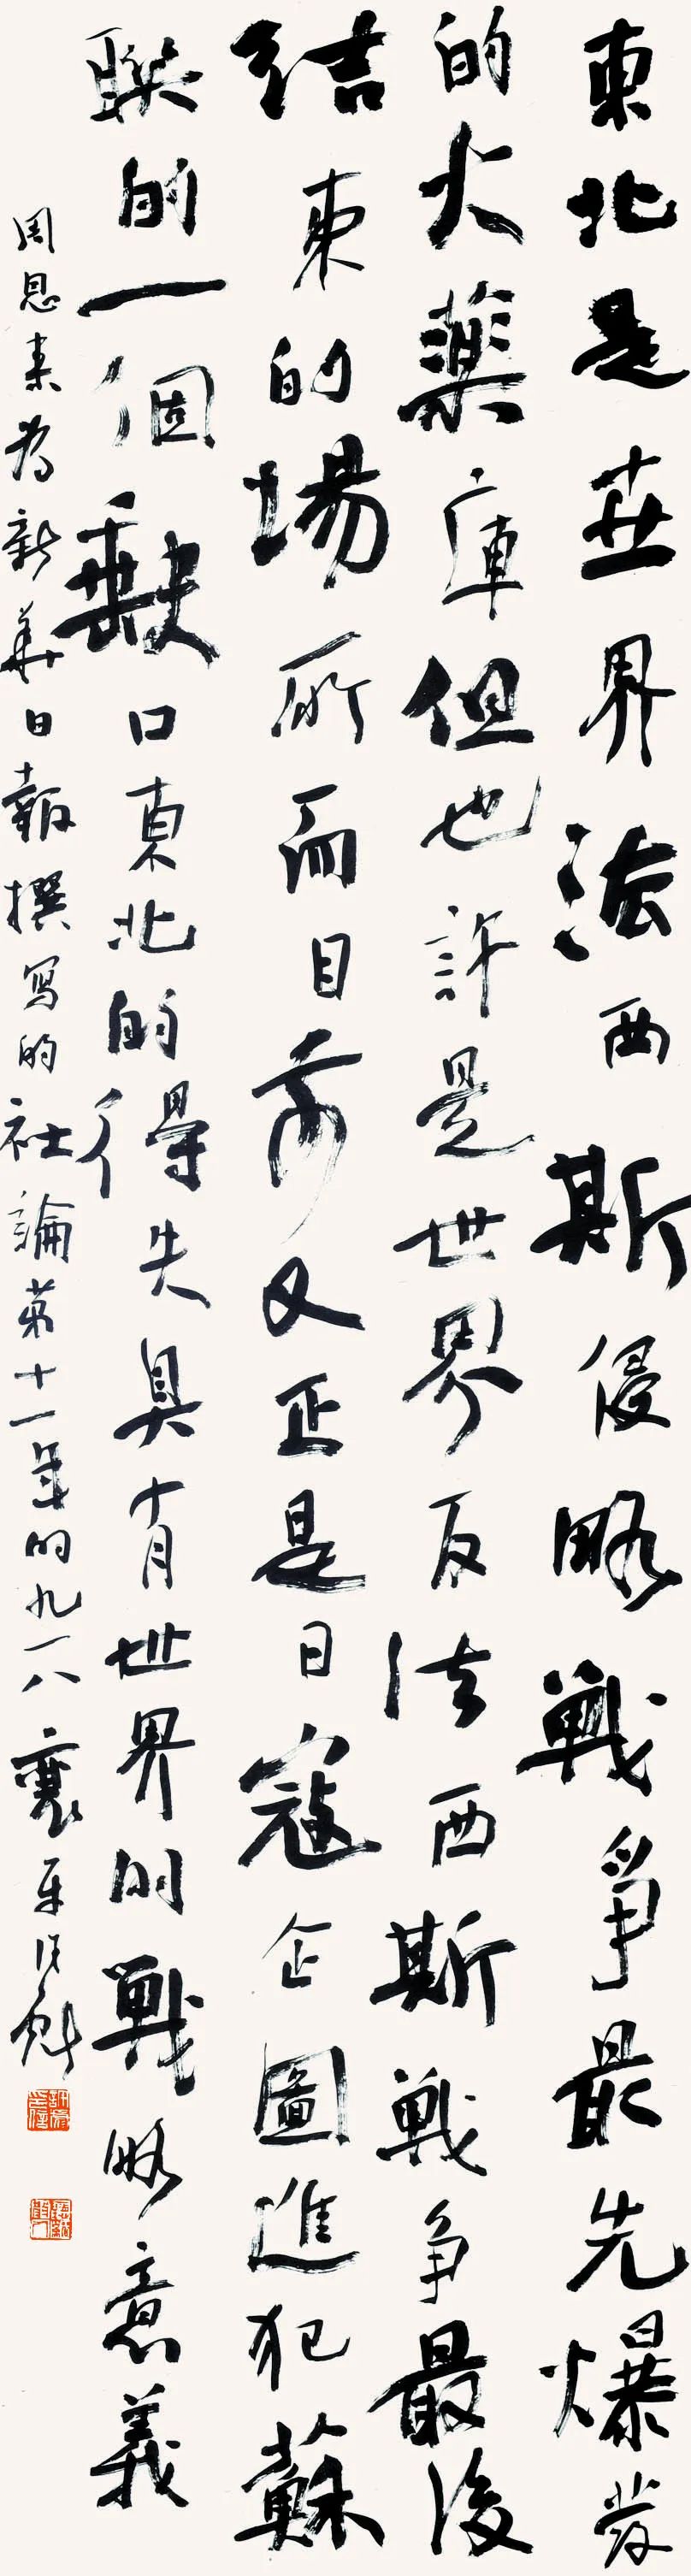 東北是世界法西斯侵略戰爭最先爆發
的火藥庫但也許是世界反法西斯戰争最後
結束的場所而目前又正是日寇企圖進犯蘇
聯的一個缺口東北的得失具有世界的戰略意義
周恩来為新華日報撰寫的社論第十一年的九一八 襄平